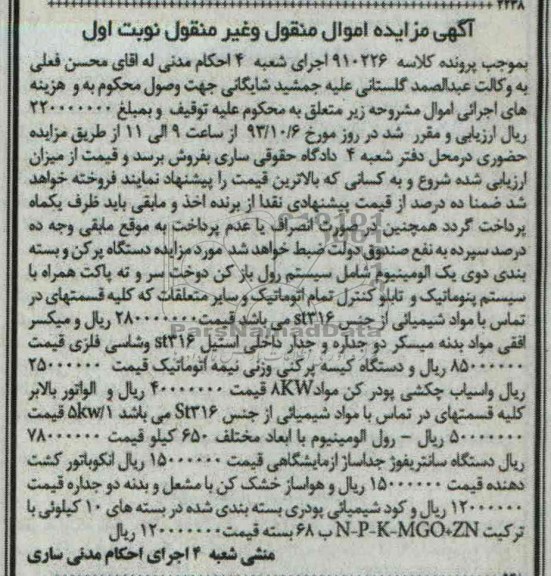 ۲۲۳۸
آگهی مزایده اموال منقول وغیر منقول نوبت اول
بموجب پرونده کلاسه ۹۱۰۲۲۶ اجرای شعبه ۴ احکام مدنی له اقای محسن فعلی
به وکالت عبدالصمد گلستانی علیه جمشید شایگانی جهت وصول محکوم به و هزینه
های اجرائی اموال مشروحه زیر متعلق به محکوم علیه توقیف و بمبلغ ۲۲۰۰۰۰۰۰۰
ریال ارزیابی و مقرر شد در روز مورخ ۹۳/۱۰/۶ از ساعت ۹ الی ۱۱ از طریق مزایده
حضوری درمحل دفتر شعبه ۴ دادگاه حقوقی ساری بفروش برسد و قیمت از میزان
ارزیابی شده شروع و به کسانی که بالاترین قیمت را پیشنهاد نمایند فروخته خواهد
شد ضمنا ده درصد از قیمت پیشنهادی نقدا از برنده اخذ و مابقی باید ظرف یکماه
پرداخت گردد همچنین در صورت انصراف یا عدم پرداخت به موقع مابقی وجه ده
درصد سپرده به نفع صندوق دولت ضبط خواهد شد مورد مزایده دستگاه پرکن و بسته
بندی دوی یک الومینیوم شامل سیستم رول باز کن دوخت سر و ته پاکت همراه با
سیستم پنوماتیک و تابلو کنترل تمام اتوماتیک و سایر متعلقات که کلیه قسمتهای در
تماس با مواد شیمیائی از جنس st۳۱۶ می باشد قیمت ۲۸۰۰۰۰۰۰۰ ریال و میکسر
افقی مواد بدنه میسکر دو جداره و جدار داخلی استیل st۳۱۶ وشاسی فلزی قیمت
۸۵۰۰۰۰۰۰ ریال و دستگاه کیسه پرکنی وزنی نیمه اتوماتیک قیمت ۲۵۰۰۰۰۰۰
ریال واسیاب چکشی پودر کن مواد ۸KW قیمت ۴۰۰۰۰۰۰۰ ریال و الواتور بالابر
کلیه قسمتهای در تماس با مواد شیمیائی از جنس St۳۱۶ می باشد ۵kw/۱ قیمت
۵۰۰۰۰۰۰۰ ریال – رول الومینیوم با ابعاد مختلف ۶۵۰ کیلو قیمت ۷۸۰۰۰۰۰۰
ریال دستگاه سانتریفوژ جداساز ازمایشگاهی قیمت ۱۵۰۰۰۰۰۰ ریال انکوباتور کشت
دهنده قیمت ۱۵۰۰۰۰۰۰ ریال و هواساز خشک کن با مشعل و بدنه دو جداره قیمت
۱۲۰۰۰۰۰۰ ریال و کود شیمیائی پودری بسته بندی شده در بسته های ۱۰ کیلوئی با
ترکیت N-P-K-MGO+ZN ب ۶۸ بسته قیمت ۱۲۰۰۰۰۰۰۰ ریال
منشی شعبه ۴ اجرای احکام مدنی ساری
ParsNamadData